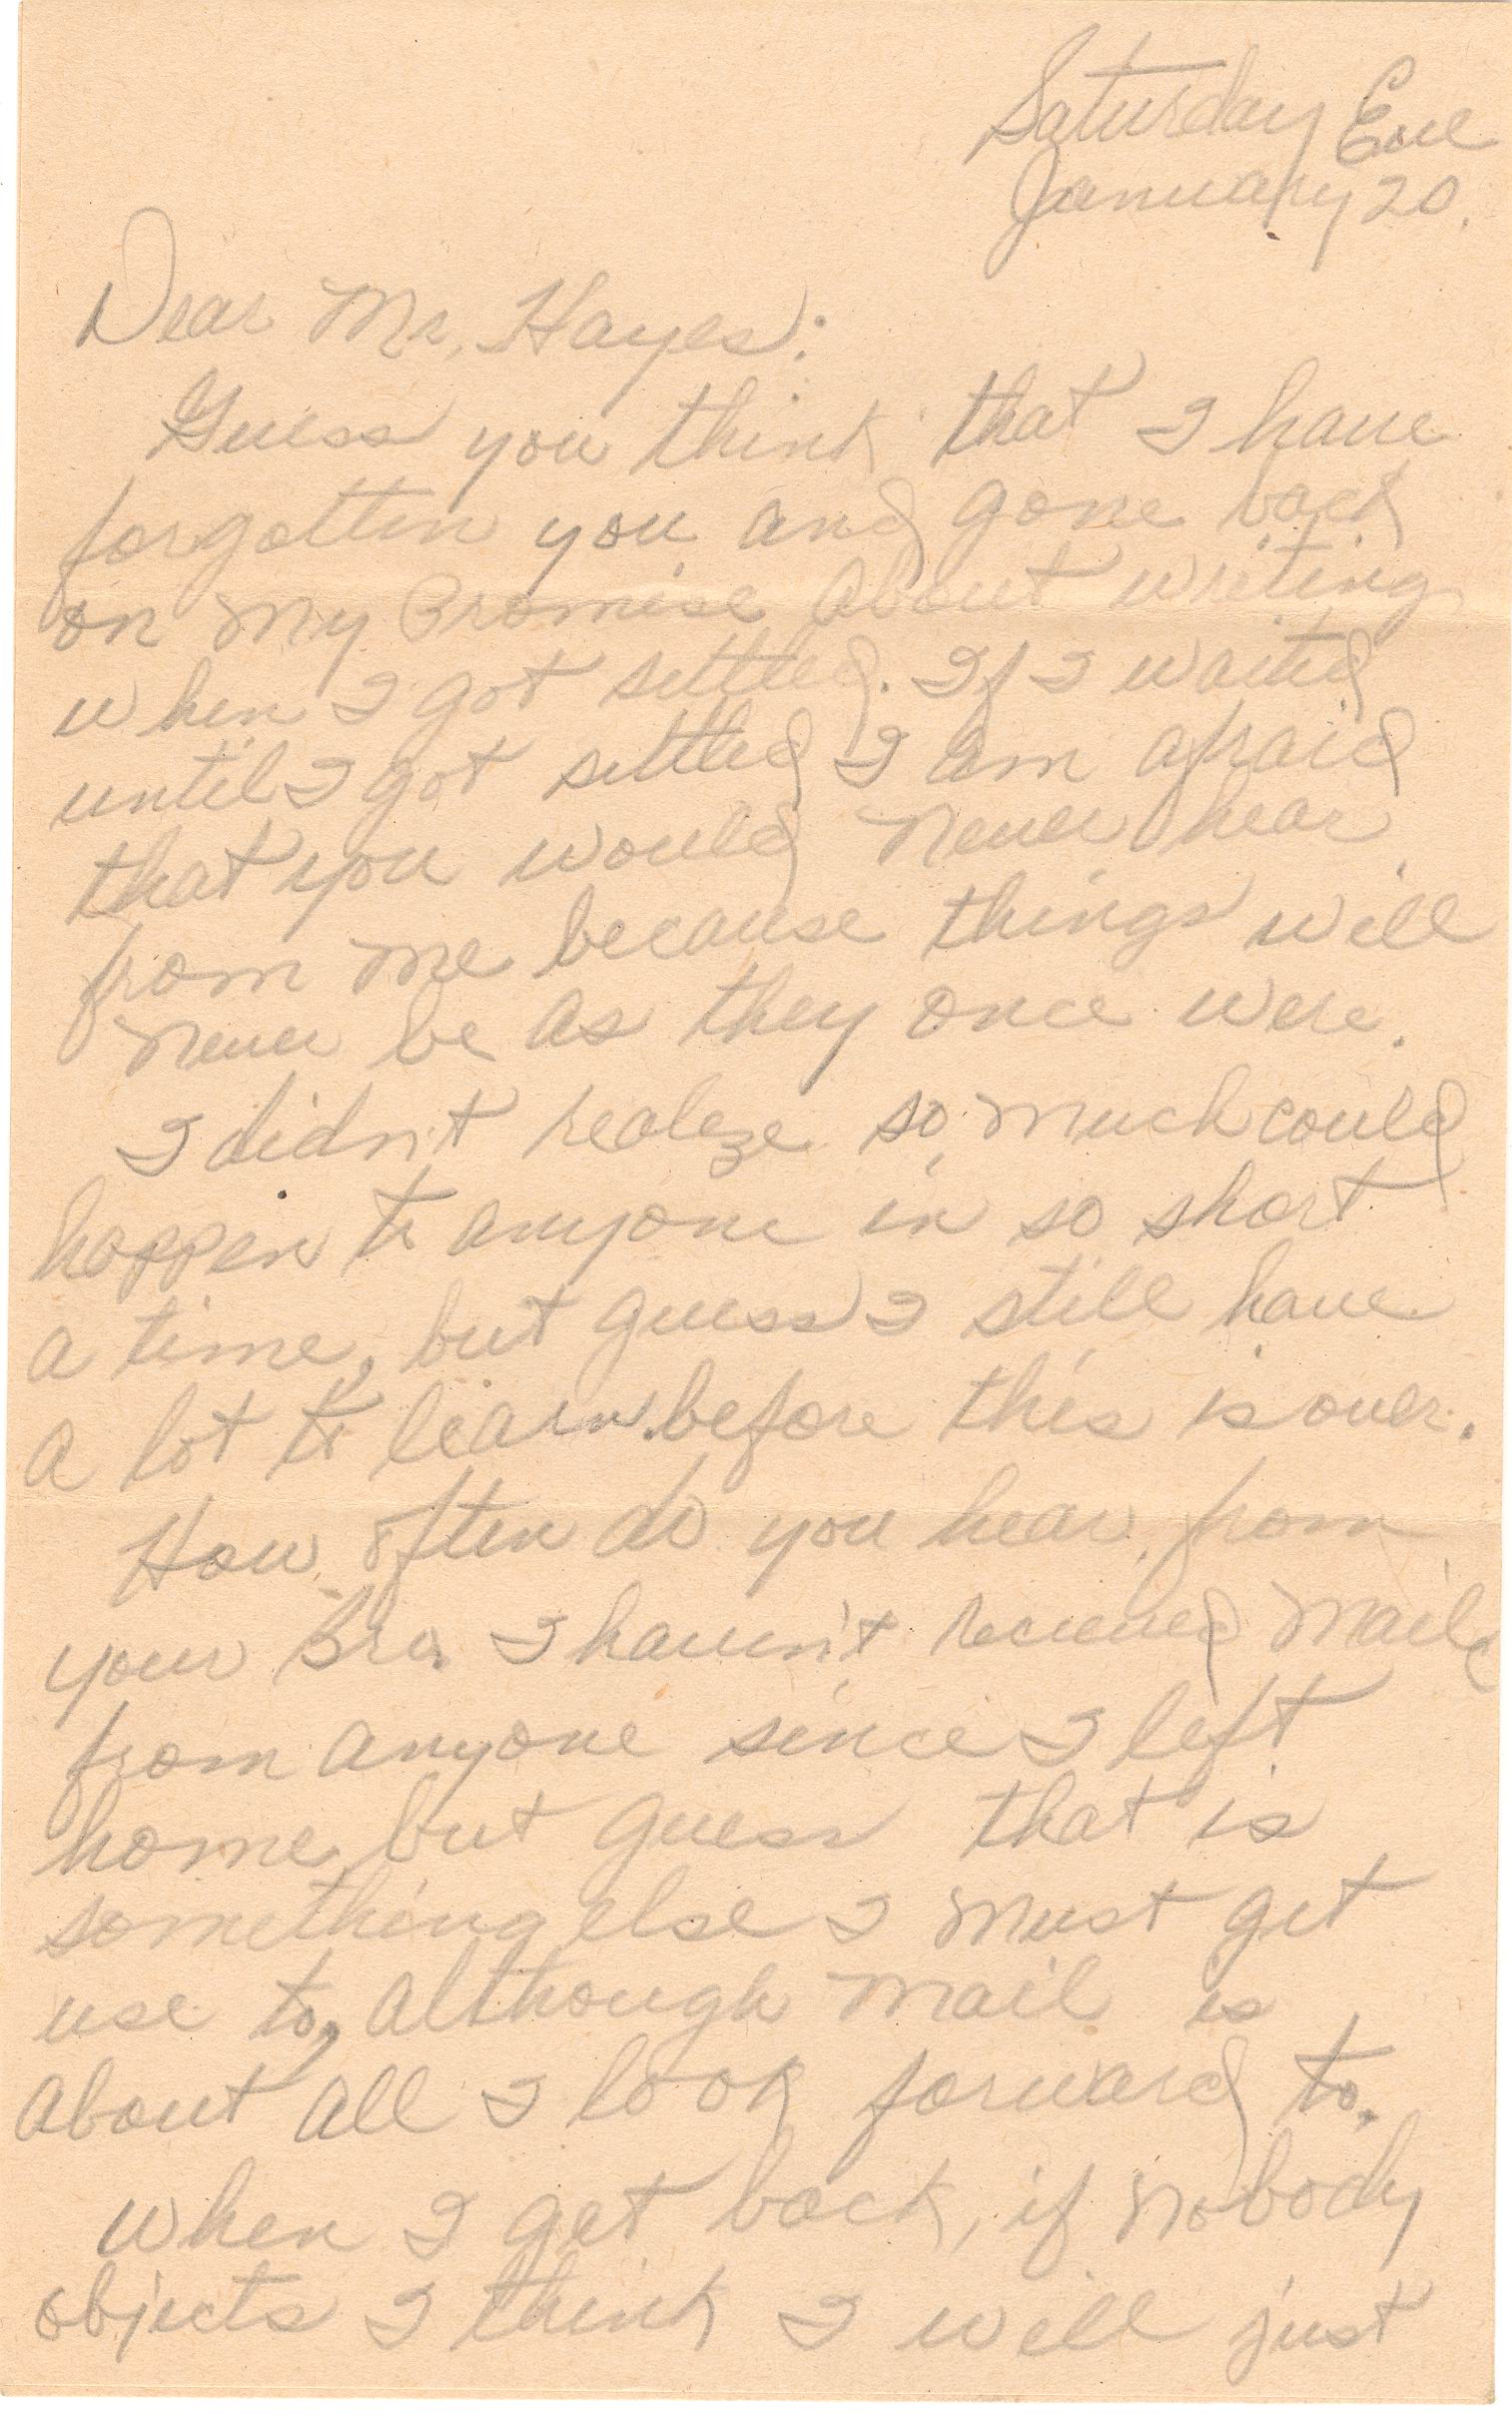 Saturday Eve
January 20.
Dear Mr. Hayes:
Guess you think that I have
forgotten you and gone back
on my Promise about writing
when I got settled. If I waited
until I got settled I am afraid
that you would never hear
from me because things will
never be as they once were.
I didn't realize so much could
happen to anyone in so short
a time, but guess I still have
a lot to learn before this is over.
How often do you hear from
your Bro. I haven't recieved mail
from anyone since I left
home, but guess that is
something else I must get
use to, although mail is
about all I look forward to.
When I get back, if nobody
objects I think I will just